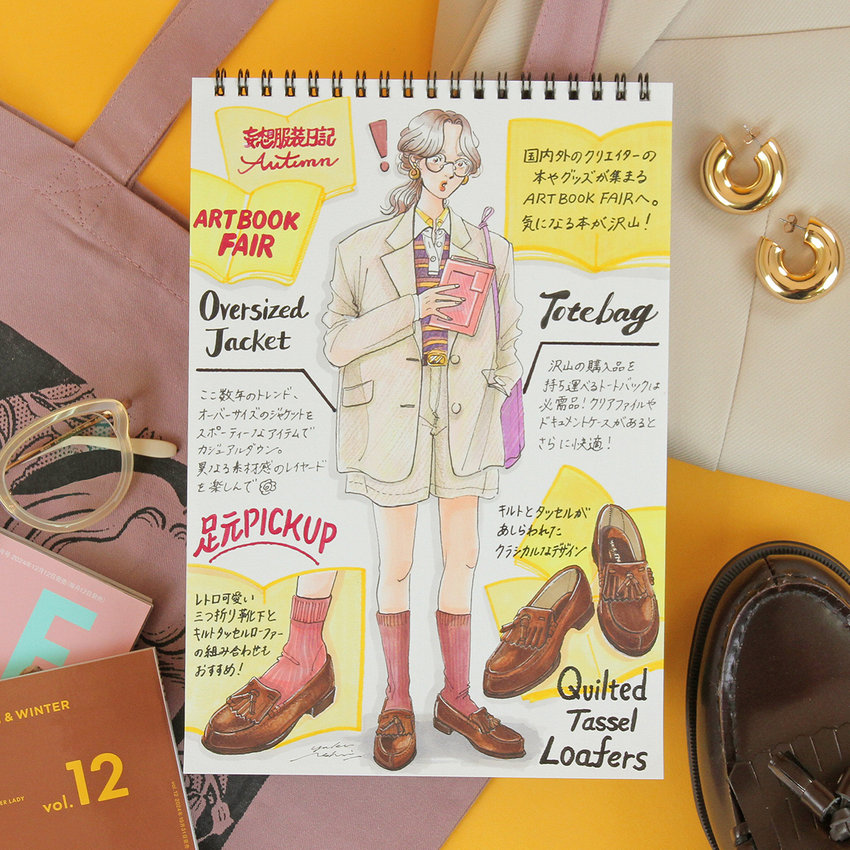 妄想服装日記
Autumn
ARTBOOK
FAIR
国内外のクリエイターの
本やグッズが集まる
ART BOOK FAIRへ。
気になる本が沢山!
Oversized
Jacket
ここ数年のトレンド、
オーバーサイズのジャケットを
スポーティーなアイテムで
カジュアルダウン。
異なる素材感のレイヤード
を楽しんで
Totebag
沢山の購入品を
持ち運べるトートバックは
必需品!クリアファイルや
ドキュメントケースがあると
さらに快適!
足元PICKUP
レトロ可愛い
三つ折り靴下と
キルトタッセルローファー
の組み合わせも
おすすめ!
キルトとタッセルが
あしらわれた
クラシカルなデザイン
Quilted
Tassel
Loafers
& WINTER
vol.12
ER LADY